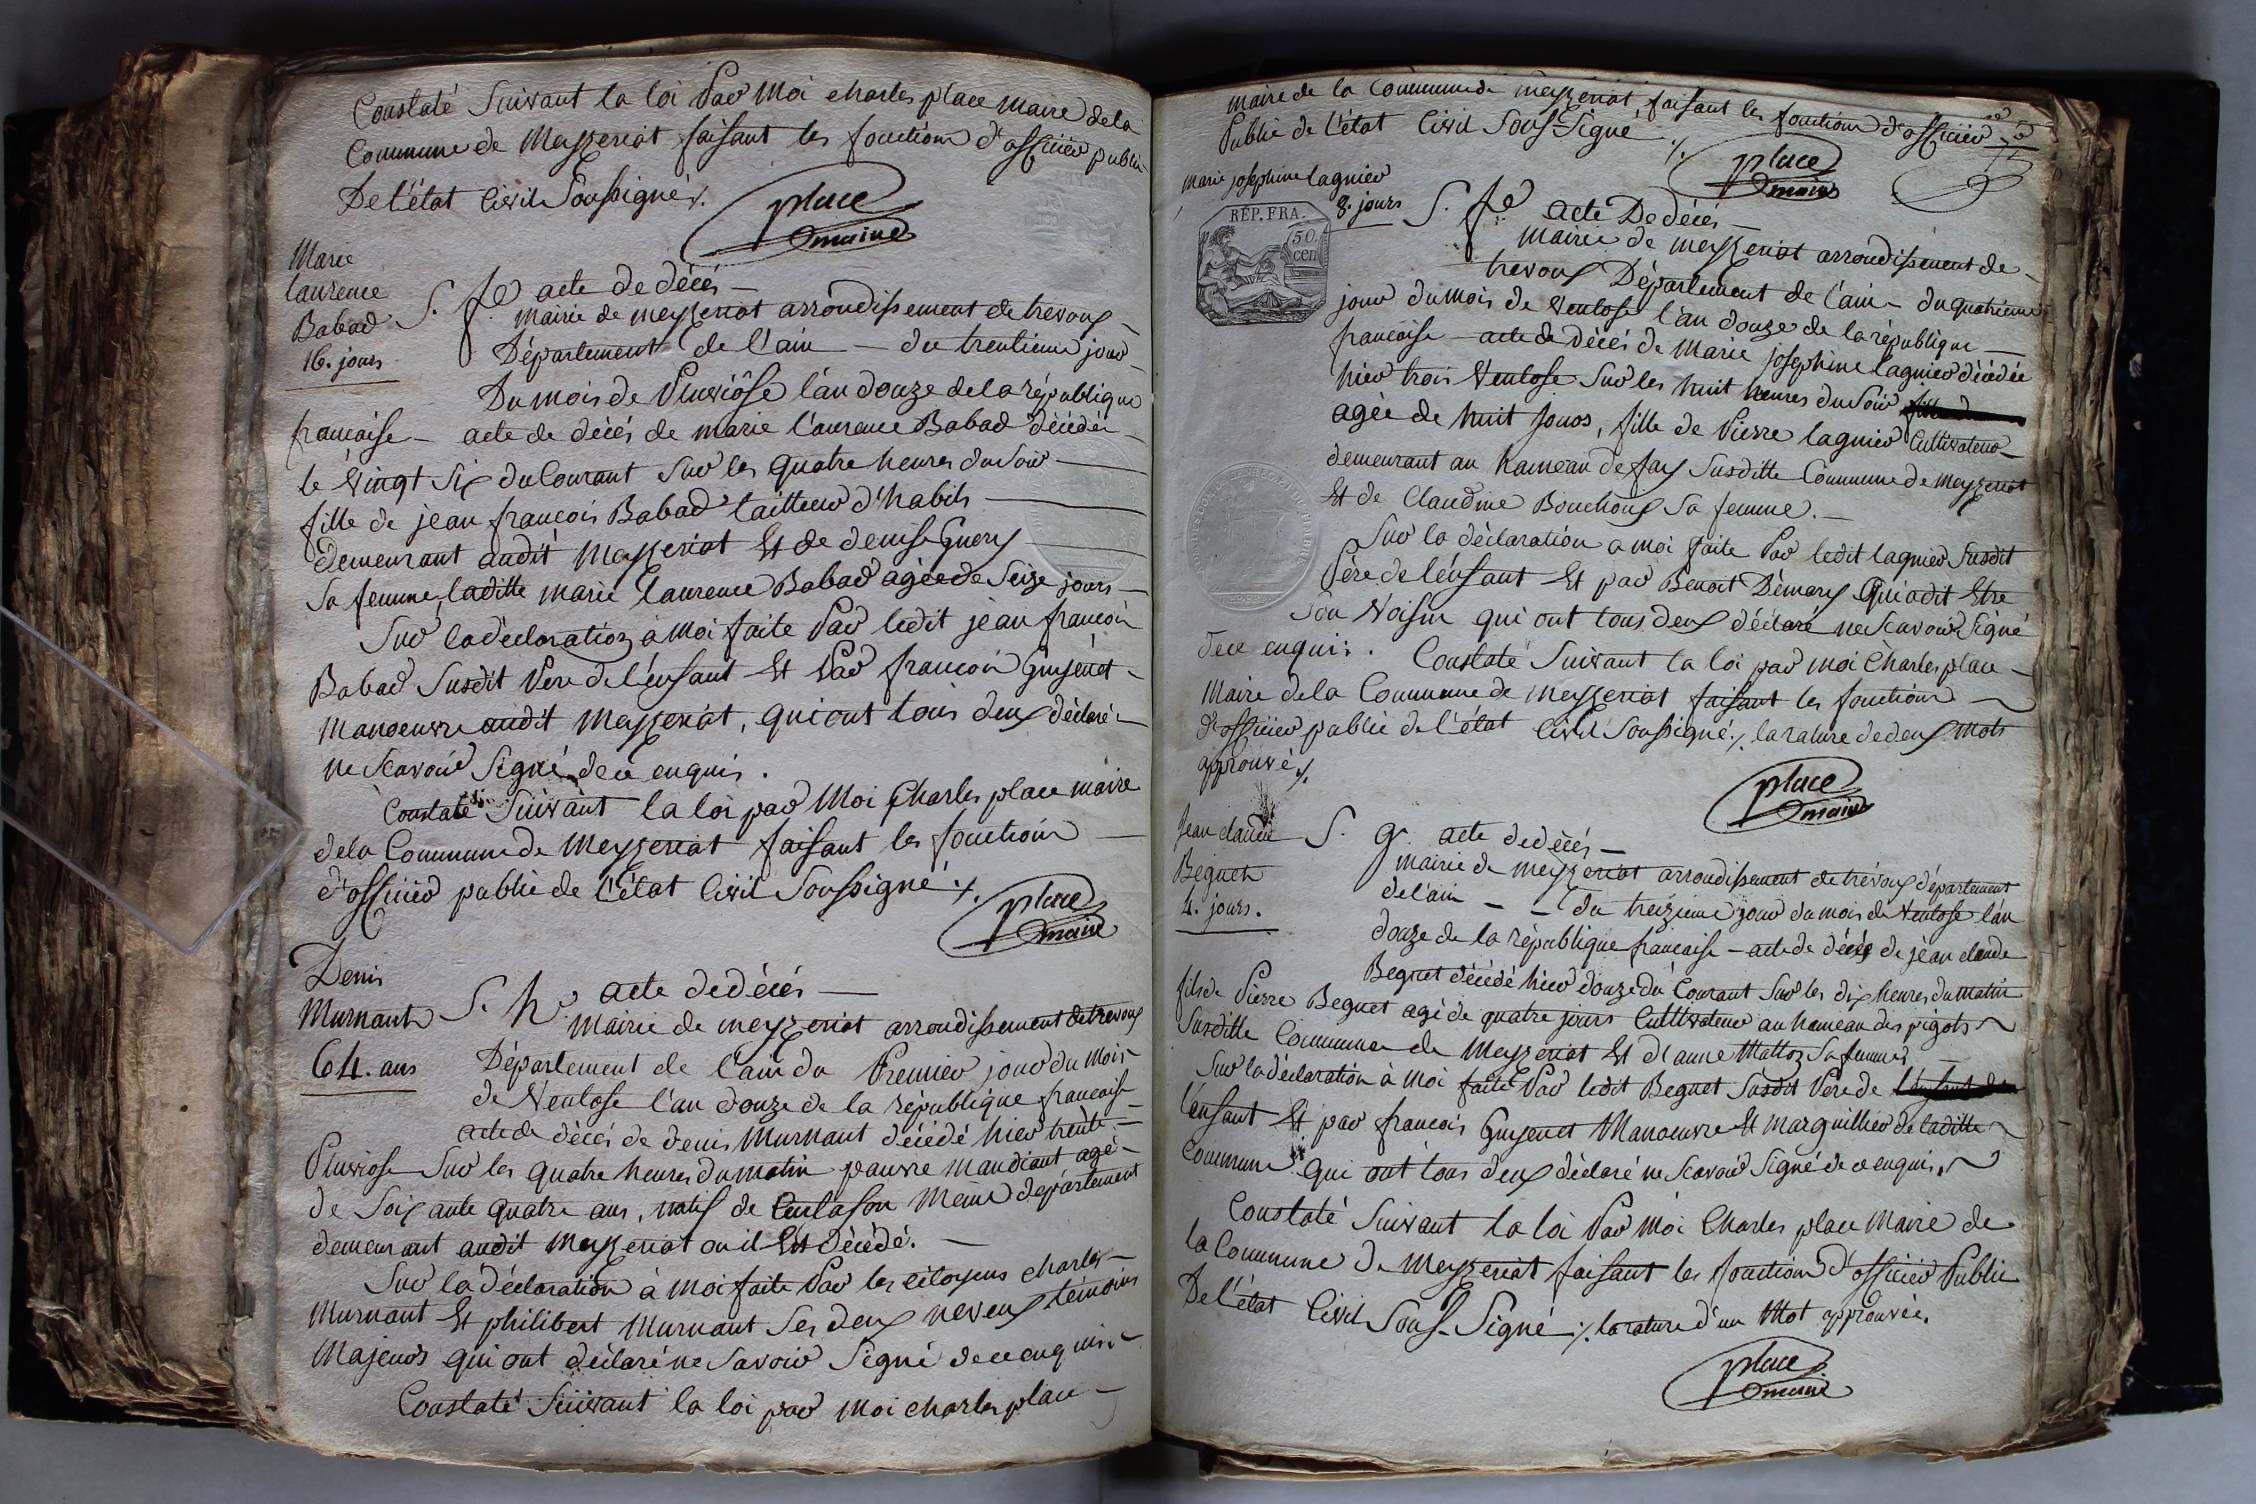 Constaté Suivant la loi Par Moi charles place maire dela
Commune de Meyzeriat faisant les fonctions d'officier public
De l'état Civil Soussigné ./.
place
maire
Marie
laurence
Babad
16. jours
S. fe acte de décés —
mairie de meyzeriat arrondissement de trevoux —
Département de l'ain — du trentieme jour
Du mois de Pluviôse l'an douze de la république
francaise — acte de décés de marie laurence Babad décédée —
le vingt six du Courant Sur les quatre heures du Soir —
fille de jean francois Babad tailleur d'habits —
demeurant audit Meyzeriat Et de denise Guery —
Sa femme, laditte marie laurence Babad agée de Seize jours —
Sur la déclaration à Moi faite Par ledit jean francois
Babad Susdit Pere de l'enfant Et Par francois Guyenet —
Manoeuvre audit Meyzeriat, qui ont tous deux déclaré —
ne Scavoir Signé de ce enquis .
Constaté Suivant la loi par Moi Charles place maire
dela Commune de Meyzeriat faisant les fonctions —
d'officier public de l'état Civil Soussigné ./.
place
maire
Denis
Murnant
64. ans
S. h. acte de décés —
mairie de meyzeriat arrondissement de trevoux
Département de l'ain du Premier jour du mois
de Ventose l'an douze de la république francaise
acte de décés de denis Murnant décédé hier trente —
Pluviose Sur les quatre heures du matin pauvre mandiant agé —
de Soixante quatre ans, natif de Même département
demeurant audit Meyzeriat ou il Est décédé. —
Sur la déclaration à Moi faite Par les citoyens charles —
Murnant Et philibert Murnant Ses deux neveux témoins
Majeurs qui ont déclaré ne Savoir Signé de ce enquis. —
Constaté Suivant la loi par Moi charles place —
maire de la Commune de meyzeriat, faisant les fonctions d'officier
Public de l'état Civil Sous-Signé ./.
place
maire
Marie josephine lagnier
8. jours
RÉP. FRA.
50
cen
S. fe acte De décés —
mairie de meyzeriat arrondissement de —
trevoux Département de l'ain — du quatrieme
jour du mois de Ventose l'an douze de la république —
francaise — acte de décés de Marie josephine lagnier décédée
hier trois Ventose Sur les huit heures du Soir
agée de huit Jours, fille de Pierre lagnier Cultivateur —
demeurant au hameau de fay Susditte Commune de Meyzeriat
Et de Claudine Bouchoux Sa femme. —
Sur la déclaration a moi faite Par ledit lagnier Susdit
Père de l'enfant Et par Benoit Démary qui a dit Etre
Son Voisin qui ont tous deux déclaré ne Scavoir Signé
de ce enquis . Constaté Suivant la loi par moi Charles place —
Maire dela Commune de meyzeriat faisant les fonctions —
d'officier public de l'état Civil Soussigné ./. la rature de deux mots
approuvé ./.
place
maire
Jean claude
Beguet
4. jours.
S. g. acte de décés —
mairie de meyzeriat arrondissement de trévoux département
de l'ain — — du treizieme jour du mois de Ventose l'an
douze de la république francaise — acte de décés de jean claude
Beguet décédé hier douze du Courant Sur les dix heures du Matin
fils de Pierre Beguet agé de quatre jours Cultivateur au hameau des pigots
Susditte Commune de Meyzeriat Et d'anne Sa femme,
Sur la déclaration à Moi faite Par ledit Beguet Susdit Pere de
l'enfant Et par francois Guyenet Manoeuvre Et Marguillier de laditte
Commune qui ont tous deux déclaré ne Scavoir Signé de ce enquis.
Constaté Suivant la loi Par Moi Charles place Maire de
la Commune de Meyzeriat faisant les fonctions d'officier Public
De l'état Civil Sous-Signé ./. la rature d'un Mot approuvée.
place
maire